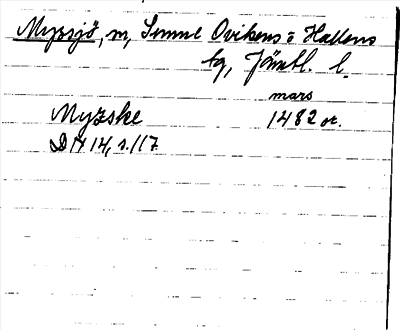 Myssjö, m, Sunne Ovikens o Hallens
tg, Jämtl. l.
mars
Myzske 1482 or.
DN 14, s. 117